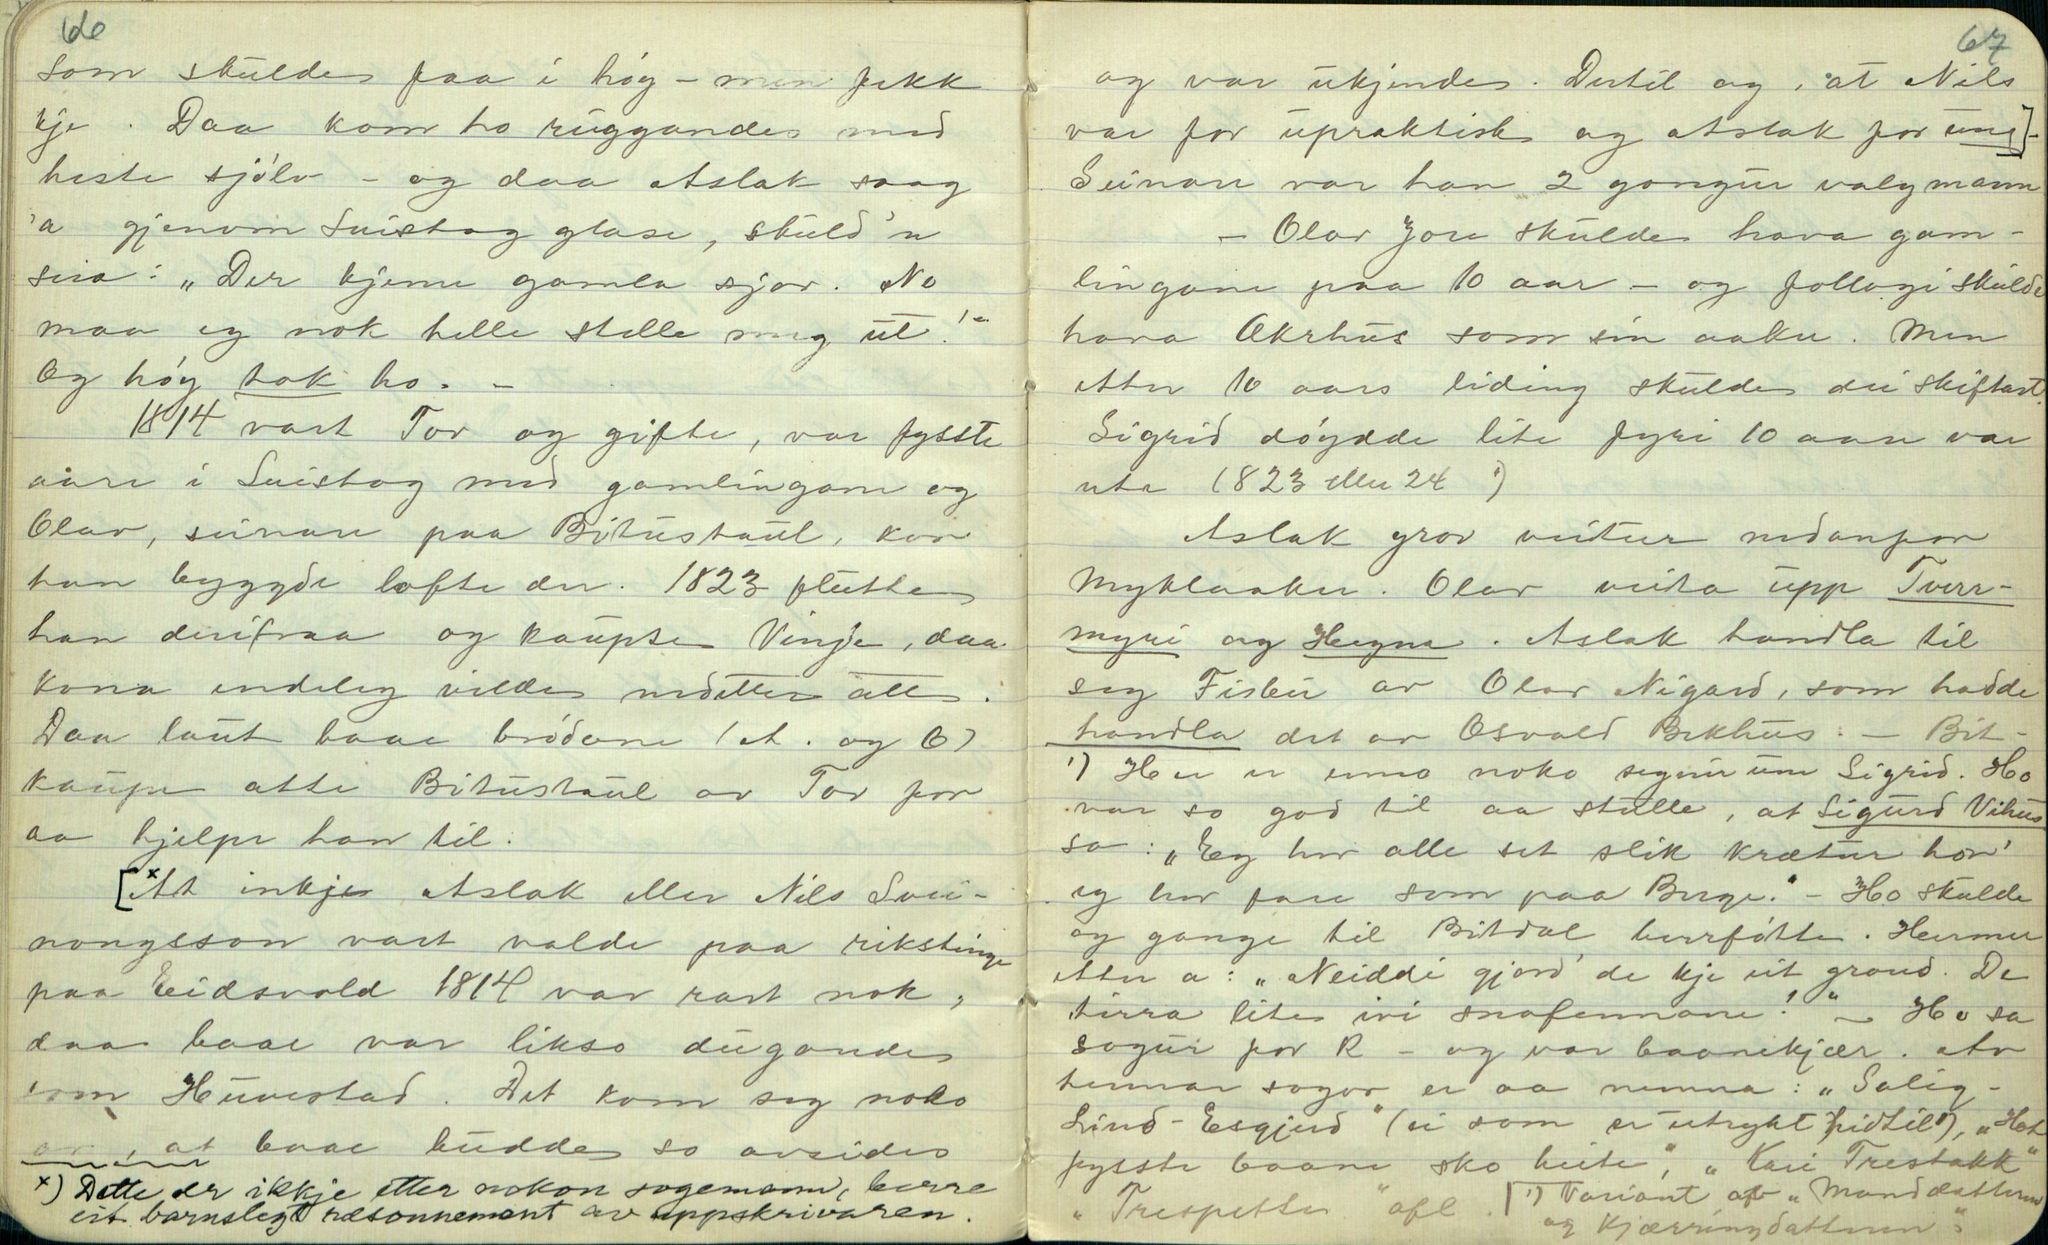 66
som skulde paa i høg – men fekk
kje. Daa kom ho ruggande med
heste sjølv – og daa Aslak saag
'a gjenom Suistog glase, skuld'n
seia: "Der kjeme gamla sjøv. No
maa eg nok helle stelle meg ut!"
Og høg tok ho. –
1814 vart Tov og gifte, var fysste
aare i Suistog med gamlingane og
Olav, seinare paa Bitustaul, kor
han bygde lofte der. 1823 flutte
han derifraa og kaupte Vinje, daa
kona endeleg vilde nedetter att.
Daa laut baae brødane (A. og O)
kaupe atte Bitustaul av Tov for
aa hjelpe han til.
[x At inkje Aslak eller Nils Svei-
nongsson vart valde paa rikstinge
paa Eidsvold 1814 var rart nok,
daa baae var likso dugande
som Huvestad. Det kom seg noko
av, at baae budde so avsides
x) Dette er ikkje etter nokon sogemann, berre
eit barnslegt ræsonnement av uppskrivaren.
67
og var ukjende. Dertil og, at Nils
var for upraktisk og Aslak for ung]–
Seinare var han 2 gongur valgmann
– Olav Jore skulde hava gam-
lingane paa 10 aar – og follogi skulde
hava Akrhus som sin aaker. Men
etter 10 aars liding skulde dei skiftast.
Sigrid døydde lite fyri 10 aare var
ute (1823 eller 24 ¹)
Aslak grov veitur nedanfor
Myklaaker. Olav veita upp Tverr-
myri og Hegna. Aslak handla til
seg Fisbu av Olav Nigard, som hadde
handla det av Osvald Bekhus: – Bit-
¹) Her er enno noko segner um Sigrid. Ho
var so god til aa stelle, at Sigurd Vihus
sa: "Eg har alle set slik krætur hor'
eg har fare som paa Berge." – Ho skulde
og gange til Bitdal berrføtte. Hermer
etter a: "Neiddi gjord' de kje eit grand. De
tirra lite ivi snafennane!" – Ho sa
sogur for R – og var baanekjær. Av
hennar sogor er aa nemna: "Salig-
Lind-Esgjerd" (ei som er utrykt hidtil¹), "Hot
fysste baane sko heite", "Kari Trestakk"
"Trespette" ofl. [¹) Variant af "Manddatteren
og Kjærringdatteren".